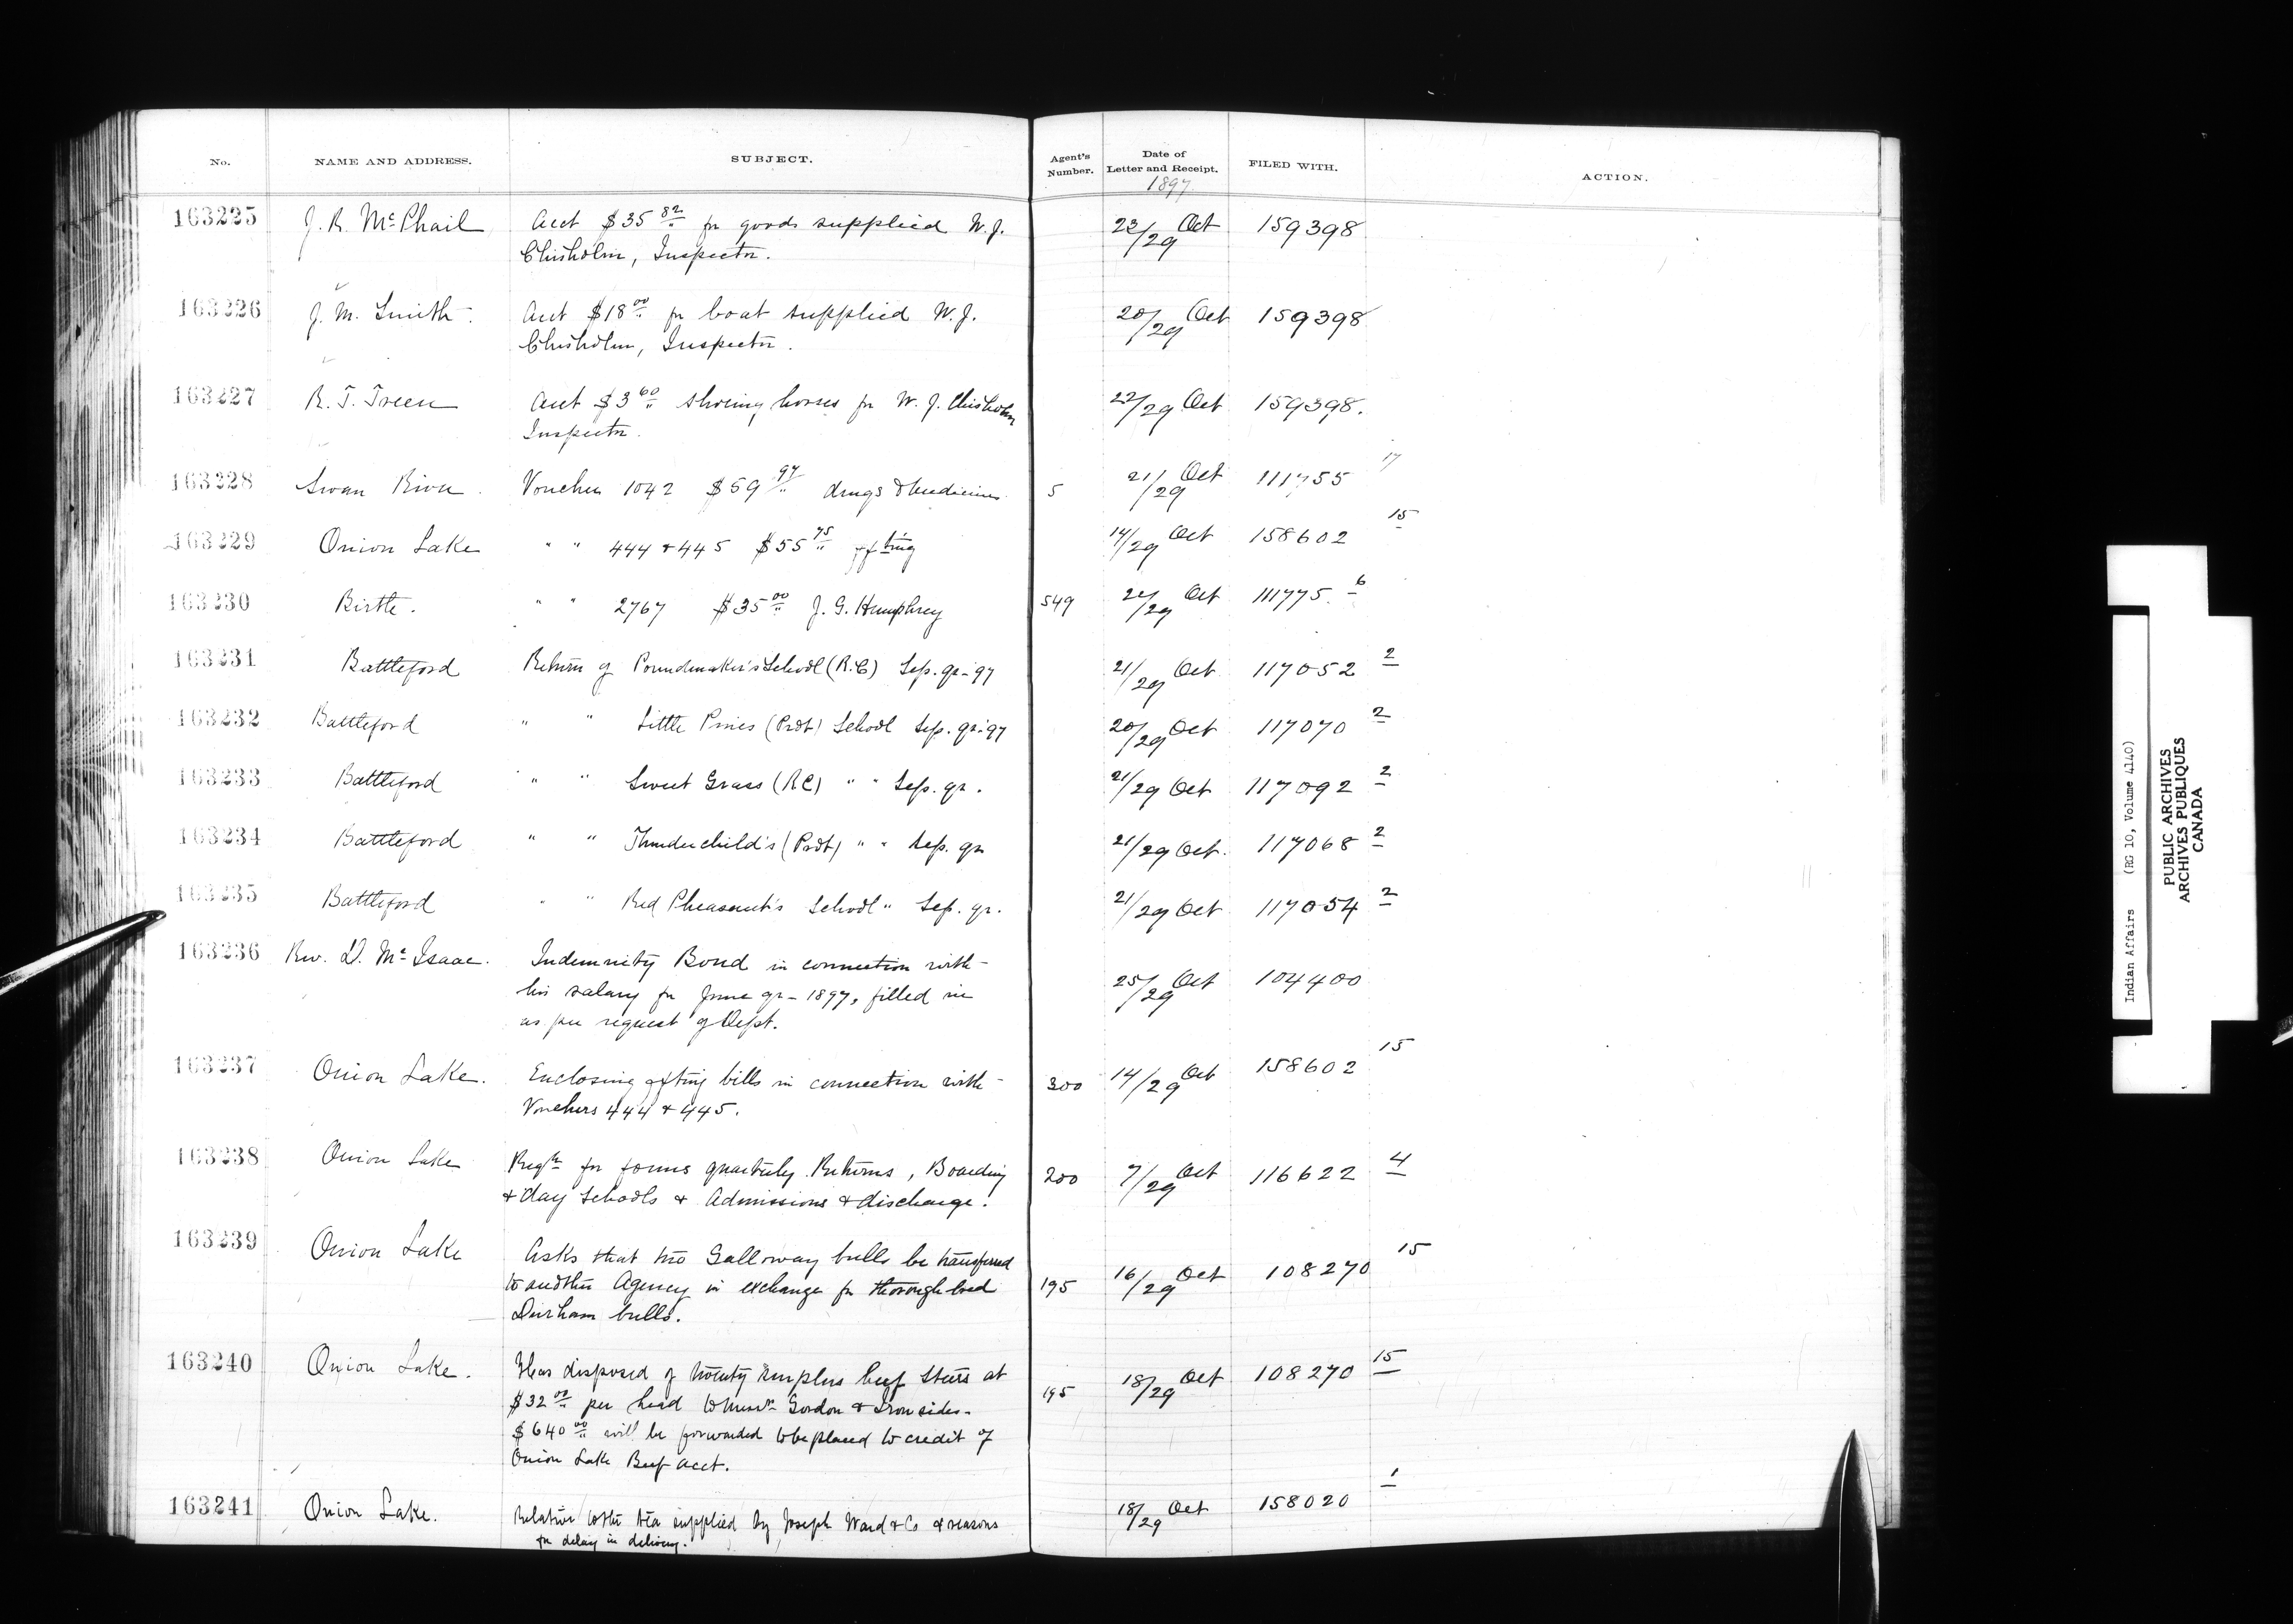 No. NAME AND ADDRESS. SUBJECT. Agent's Number. Date of Letter and Receipt. 1897 FILED WITH. ACTION.
163225 J. R. McPhail Acct $35 82 for goods supplied W. J. 23/29 Oct 159398
Chisholm, Inspector.
163226 J. M. Smith. Acct $18 00 for boat supplied W. J. 20/29 Oct 159398
Chisholm, Inspector.
163227 R. T. Treen Acct $3 60 shoeing horses for W. J. Chisholm 22/29 Oct 159398.
Inspector.
163228 Swan River. Voucher 1042 $59 97 drugs & medicines 5 21/29 Oct 111755 17
163229 Onion Lake " " 444 & 445 $55 75 ffting 14/29 Oct 158602 15
163230 Birtle. " " 2767 $35 00 J. G. Humphrey 549 22/29 Oct 111775 6
163231 Battleford Return of Poundmaker's School (R.C) Sep. qr-97 21/29 Oct 117052 2
163232 Battleford " " Little Pines (Prot) School Sep. qr-97 20/29 Oct 117070 2
163233 Battleford " " Sweet Grass (RC) " " Sep. qr. 21/29 Oct 117092 2
163234 Battleford " " Thunderchild's (Prot) " " Sep. qr 21/29 Oct. 117068 2
163235 Battleford " " Red Pheasant's School " Sep. qr. 21/29 Oct 117054 2
163236 Rev. D. McIsaac. Indemnity Bond in connection with 25/29 Oct 104400
his salary for June qr-1897, filled in
as per request of Dept.
163237 Onion Lake. Enclosing ffting bills in connection with 300 14/29 Oct 158602 15
Vouchers 444 & 445.
163238 Onion Lake Reqn for forms quarterly Returns, Boarding 200 7/29 Oct 116622 4
& day schools & Admissions & discharge.
163239 Onion Lake Asks that two Galloway bulls be transferred 195 16/29 Oct 108270 15
to another Agency in exchange for thoroughbred
Durham bulls.
163240 Onion Lake. Has disposed of twenty surplus beef steers at 195 18/29 Oct 108270 15
$32 00 per head to Messrs Gordon & Ironsides.
$640 00 will be forwarded to be placed to credit of
Onion Lake Beef acct.
163241 Onion Lake. Relative to the tea supplied by Joseph Ward & Co & reasons 18/29 Oct 158020 1
for delay in delivery.
Indian Affairs (RG 10, Volume 4140)
PUBLIC ARCHIVES
ARCHIVES PUBLIQUES
CANADA